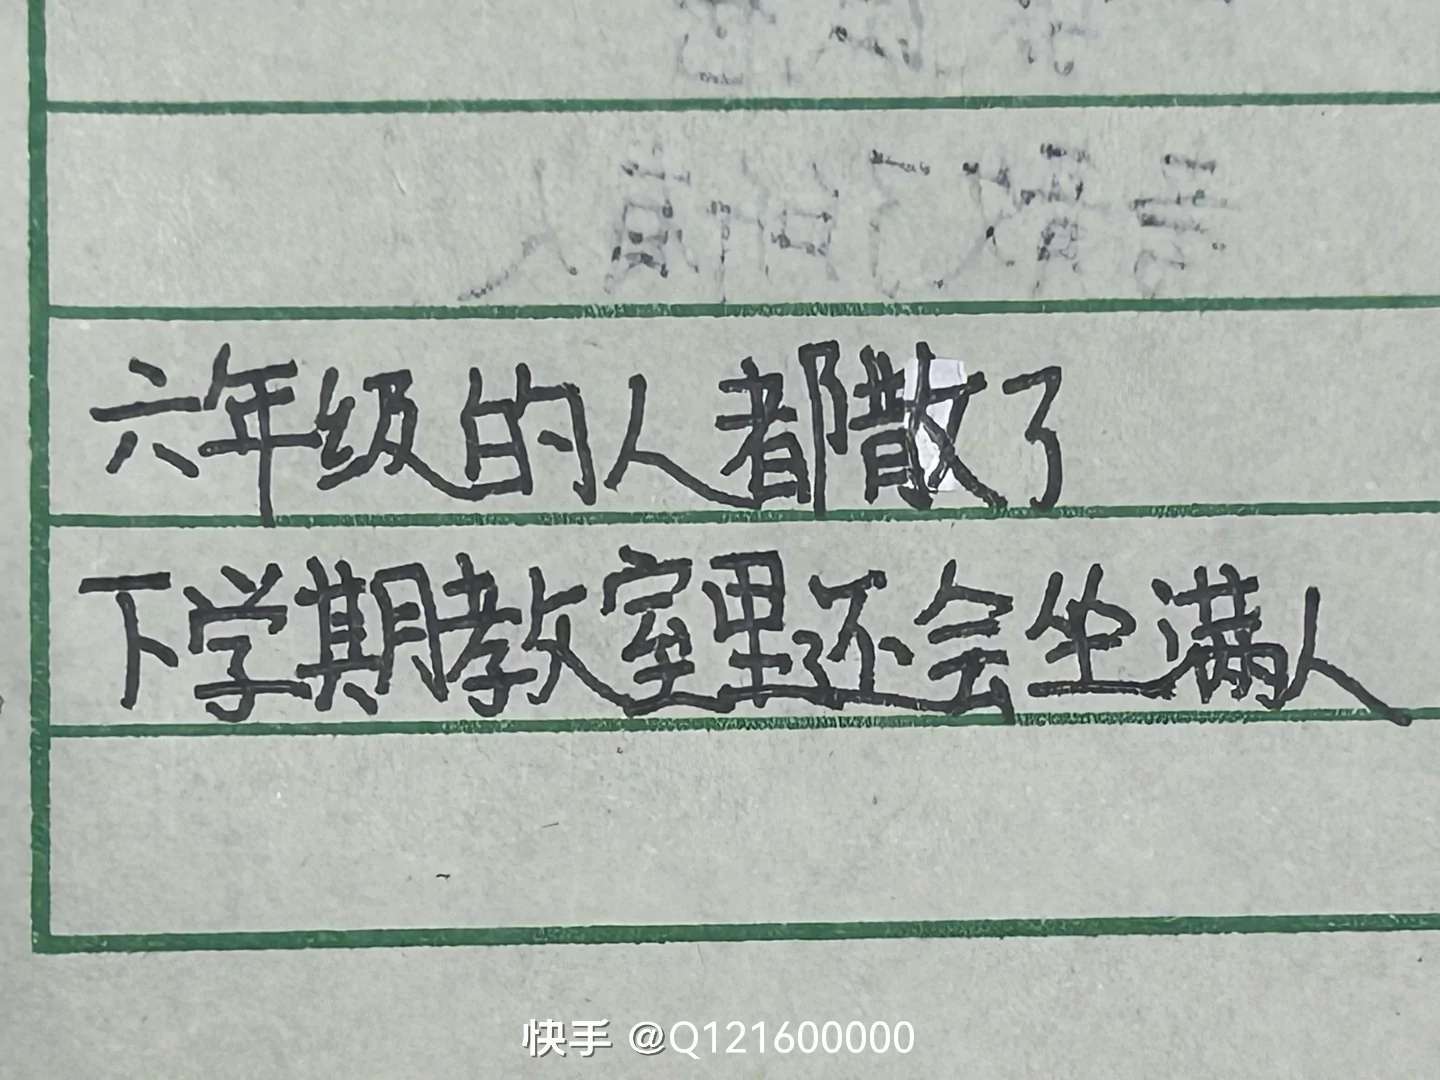 六年级的人都散了
下学期教室里还会坐满人
快手 @Q121600000